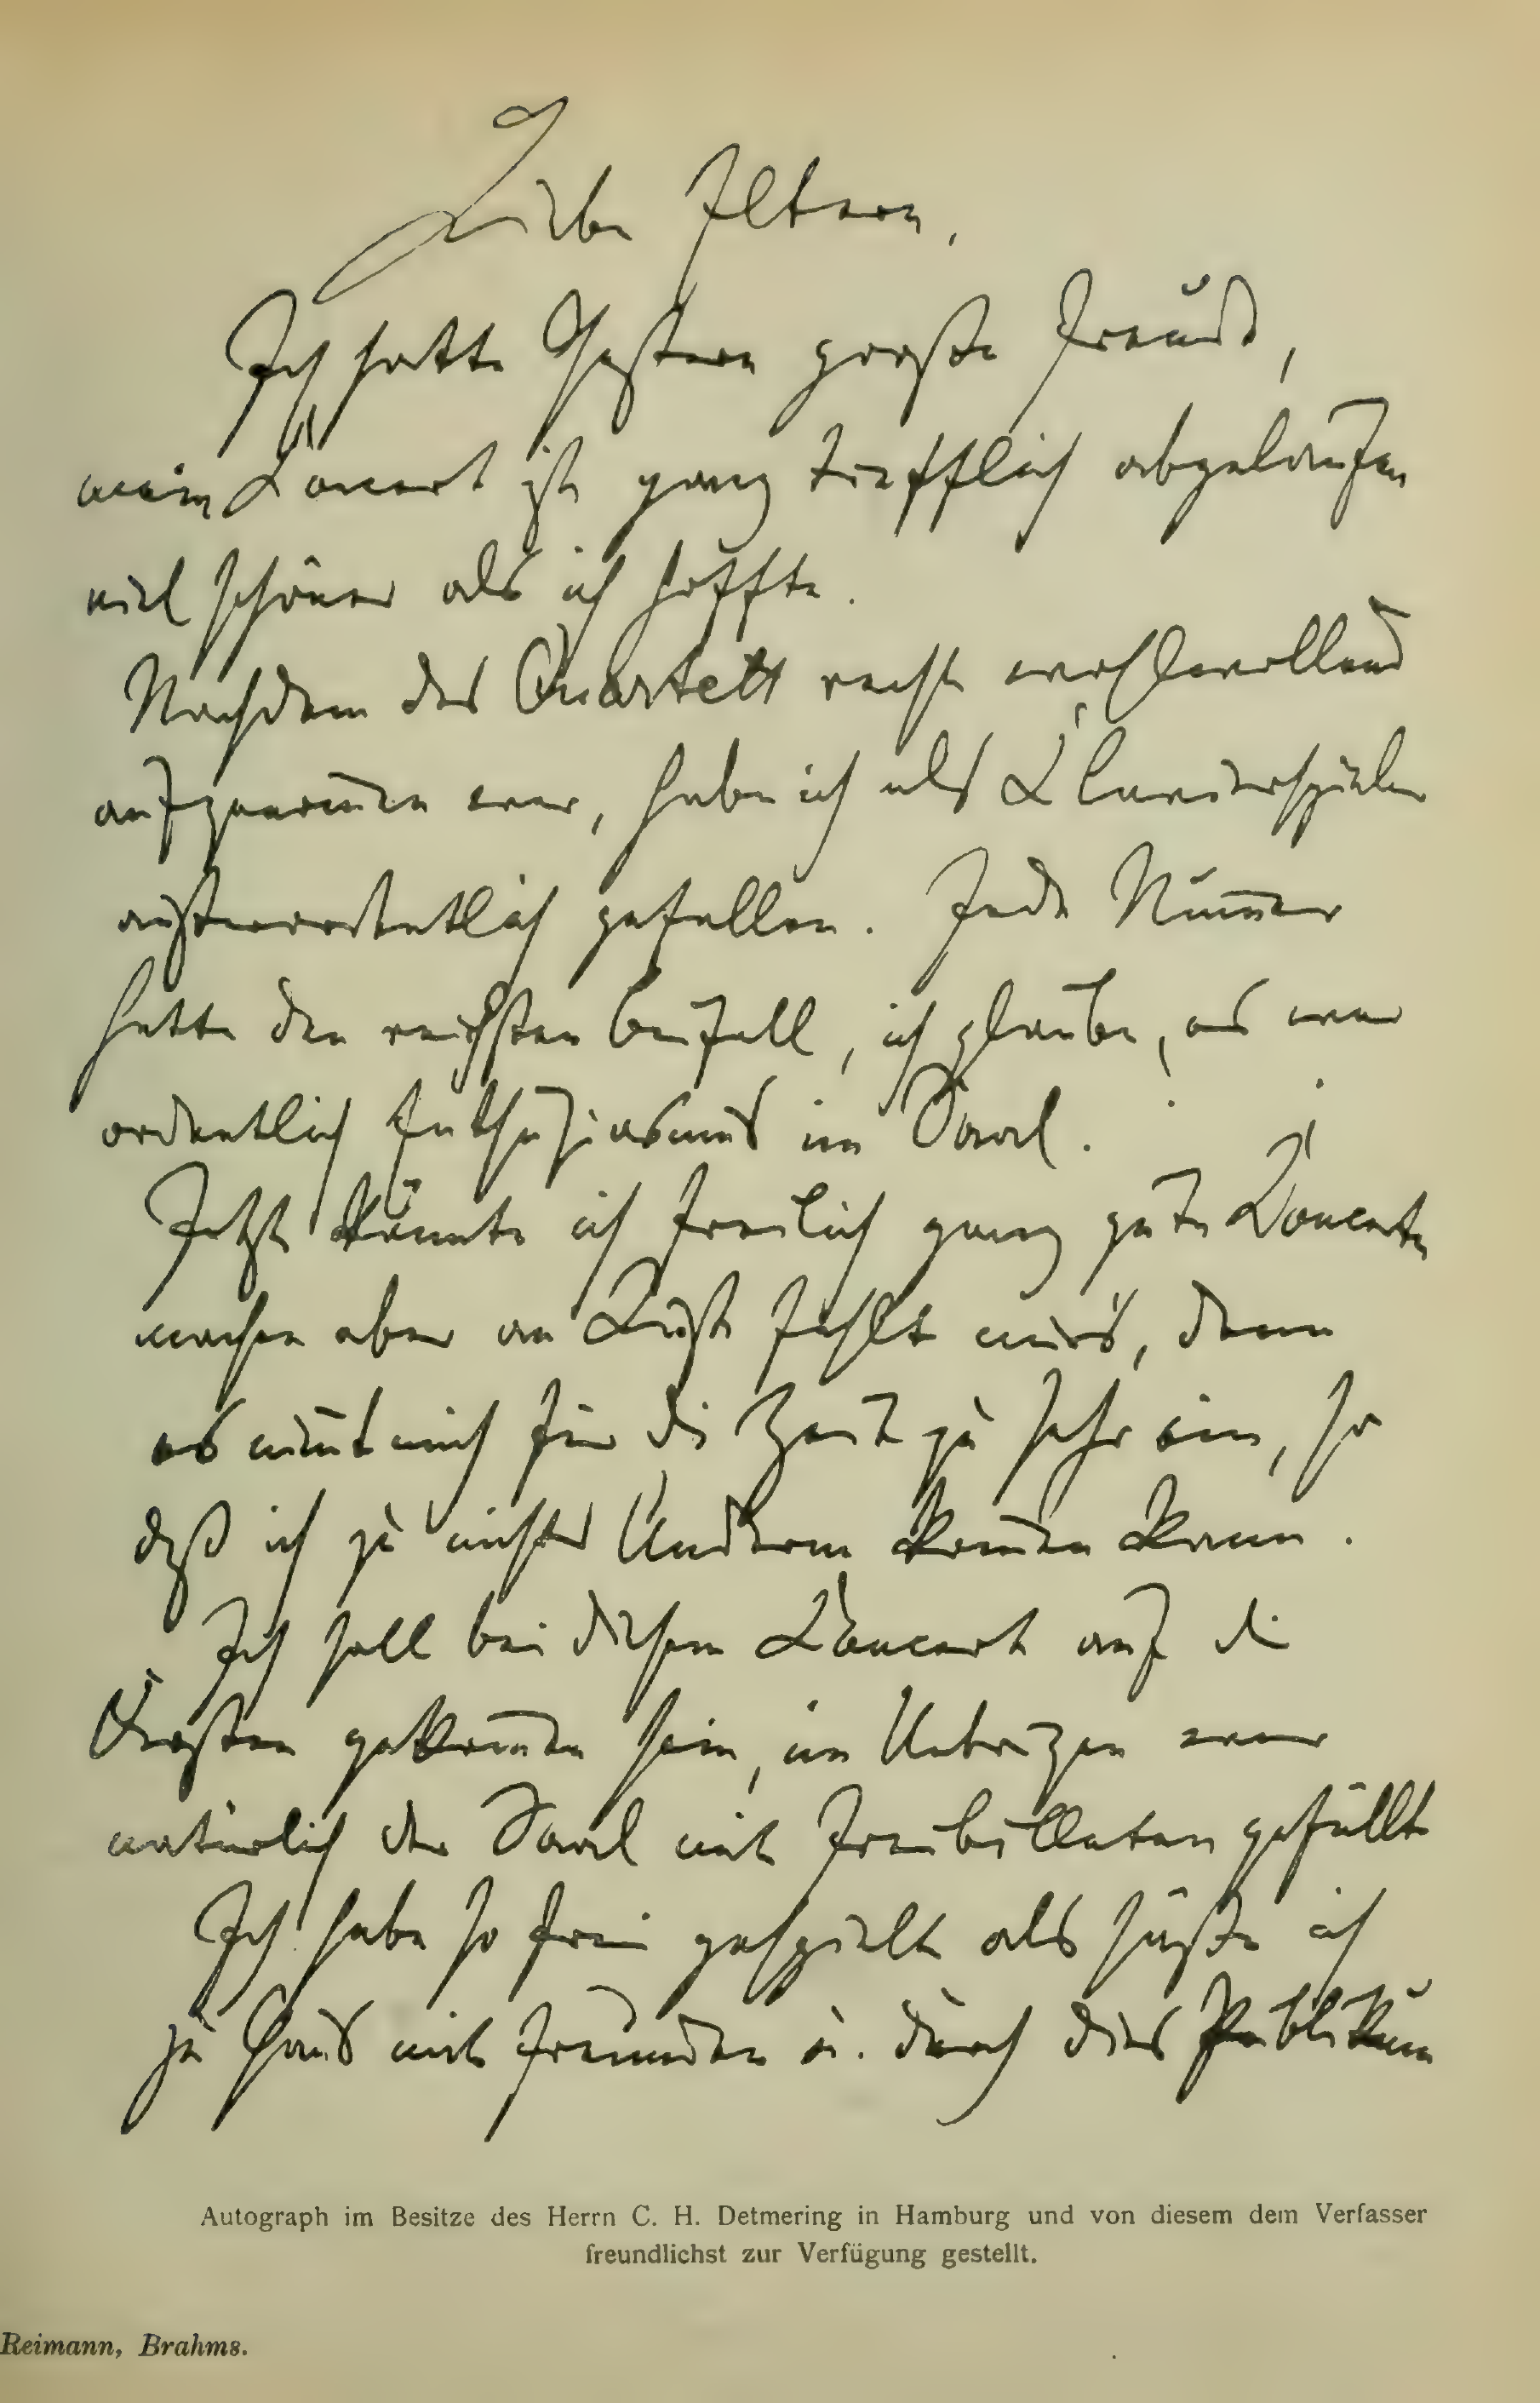 Liebe Eltern,
Ich hatte Gestern große Freude,
mein Concert ist ganz trefflich abgelaufen
viel schöner als ich hoffte.
Nachdem das Quartett recht wohlwollend
aufgenom̄en war, habe ich als Clavierspieler
außerordentlich gefallen. Jede Num̄er
hatte den reichsten Beifall, ich glaube, es war
ordentlich Enthusiasmus im Saal.
Jetzt könnte ich freilich ganz gute Concerte
machen aber an Lust fehlt mirs, denn
es nim̄t mich für die Zeit zu sehr ein, so
daß ich zu nichts Anderm kom̄en kann.
Ich soll bei diesem Concert auf die
Kosten gekom̄en sein, im Uebrigen war
natürlich der Saal mit Freibilleten gefüllt
Ich habe so frei gespielt als säße ich
zu Haus mit Freunden u. durch dies Publikum
Autograph im Besitze des Herrn C. H. Detmering in Hamburg und von diesem dem Verfasser
freundlichst zur Verfügung gestellt.
Reimann, Brahms.